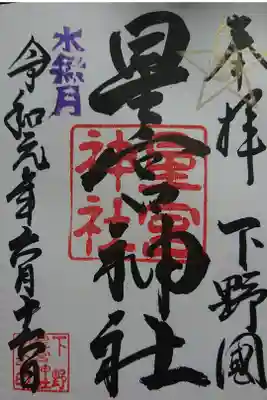 奉拝 下野國
星宮神社
星宮
神社
水無月
令和元年六月十六日
下野